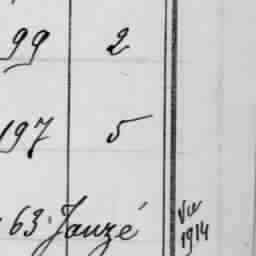 99 2
197 5
63 Janzé
Vu
1914